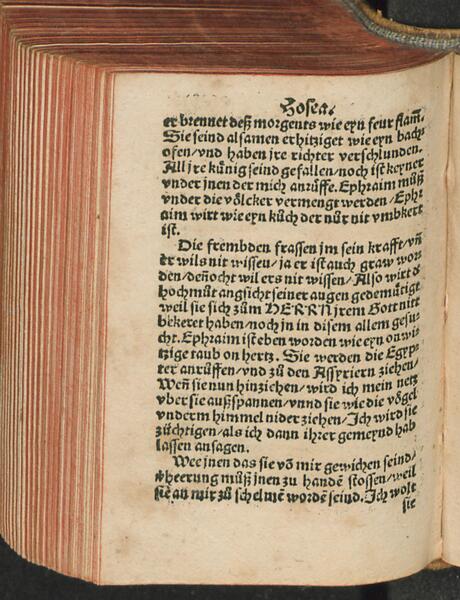 Hosea.
er brennet deß morgents wie eyn feur flam̃.
Sie seind alsamen erhitziget wie eyn bach
ofen/vnd haben jre richter verschlunden.
All jre künig seind gefallen/noch ist keyner
vnder jnen der mich anrüffe. Ephraim můß
vnder die völcker vermengt werden/Ephr
aim wirt wie eyn kůch der nůr nit vmbkert
ist.
Die frembden frassen jm sein krafft/vñ
er wils nit wissen/ja er ist auch graw wor
den/deñocht wil ers nit wissen/Also wirt d
hochmůt angsicht seiner augen gedemütigt
weil sie sich zům HERRN jrem Gott nitt
bekeret haben/noch jn in disem allem gesu
cht. Ephraim ist eben worden wie eyn onwi
tzige taub on hertz. Sie werden die Egyp
ter anrüffen/vnd zů den Assyriern ziehen/
Weñ sie nun hinziehen/wird ich mein netz
vber sie außspannen/vnnd sie wie die vögel
vnderm himmel nider ziehen/Ich wird sie
züchtigen/als ich dann ihrer gemeynd hab
lassen ansagen.
Wee jnen das sie võ mir gewichen seind/
heerung můß jnen zu handẽ stossen/weil
sie an mir zů schelmẽ wordẽ seind. Ich wolt
sie